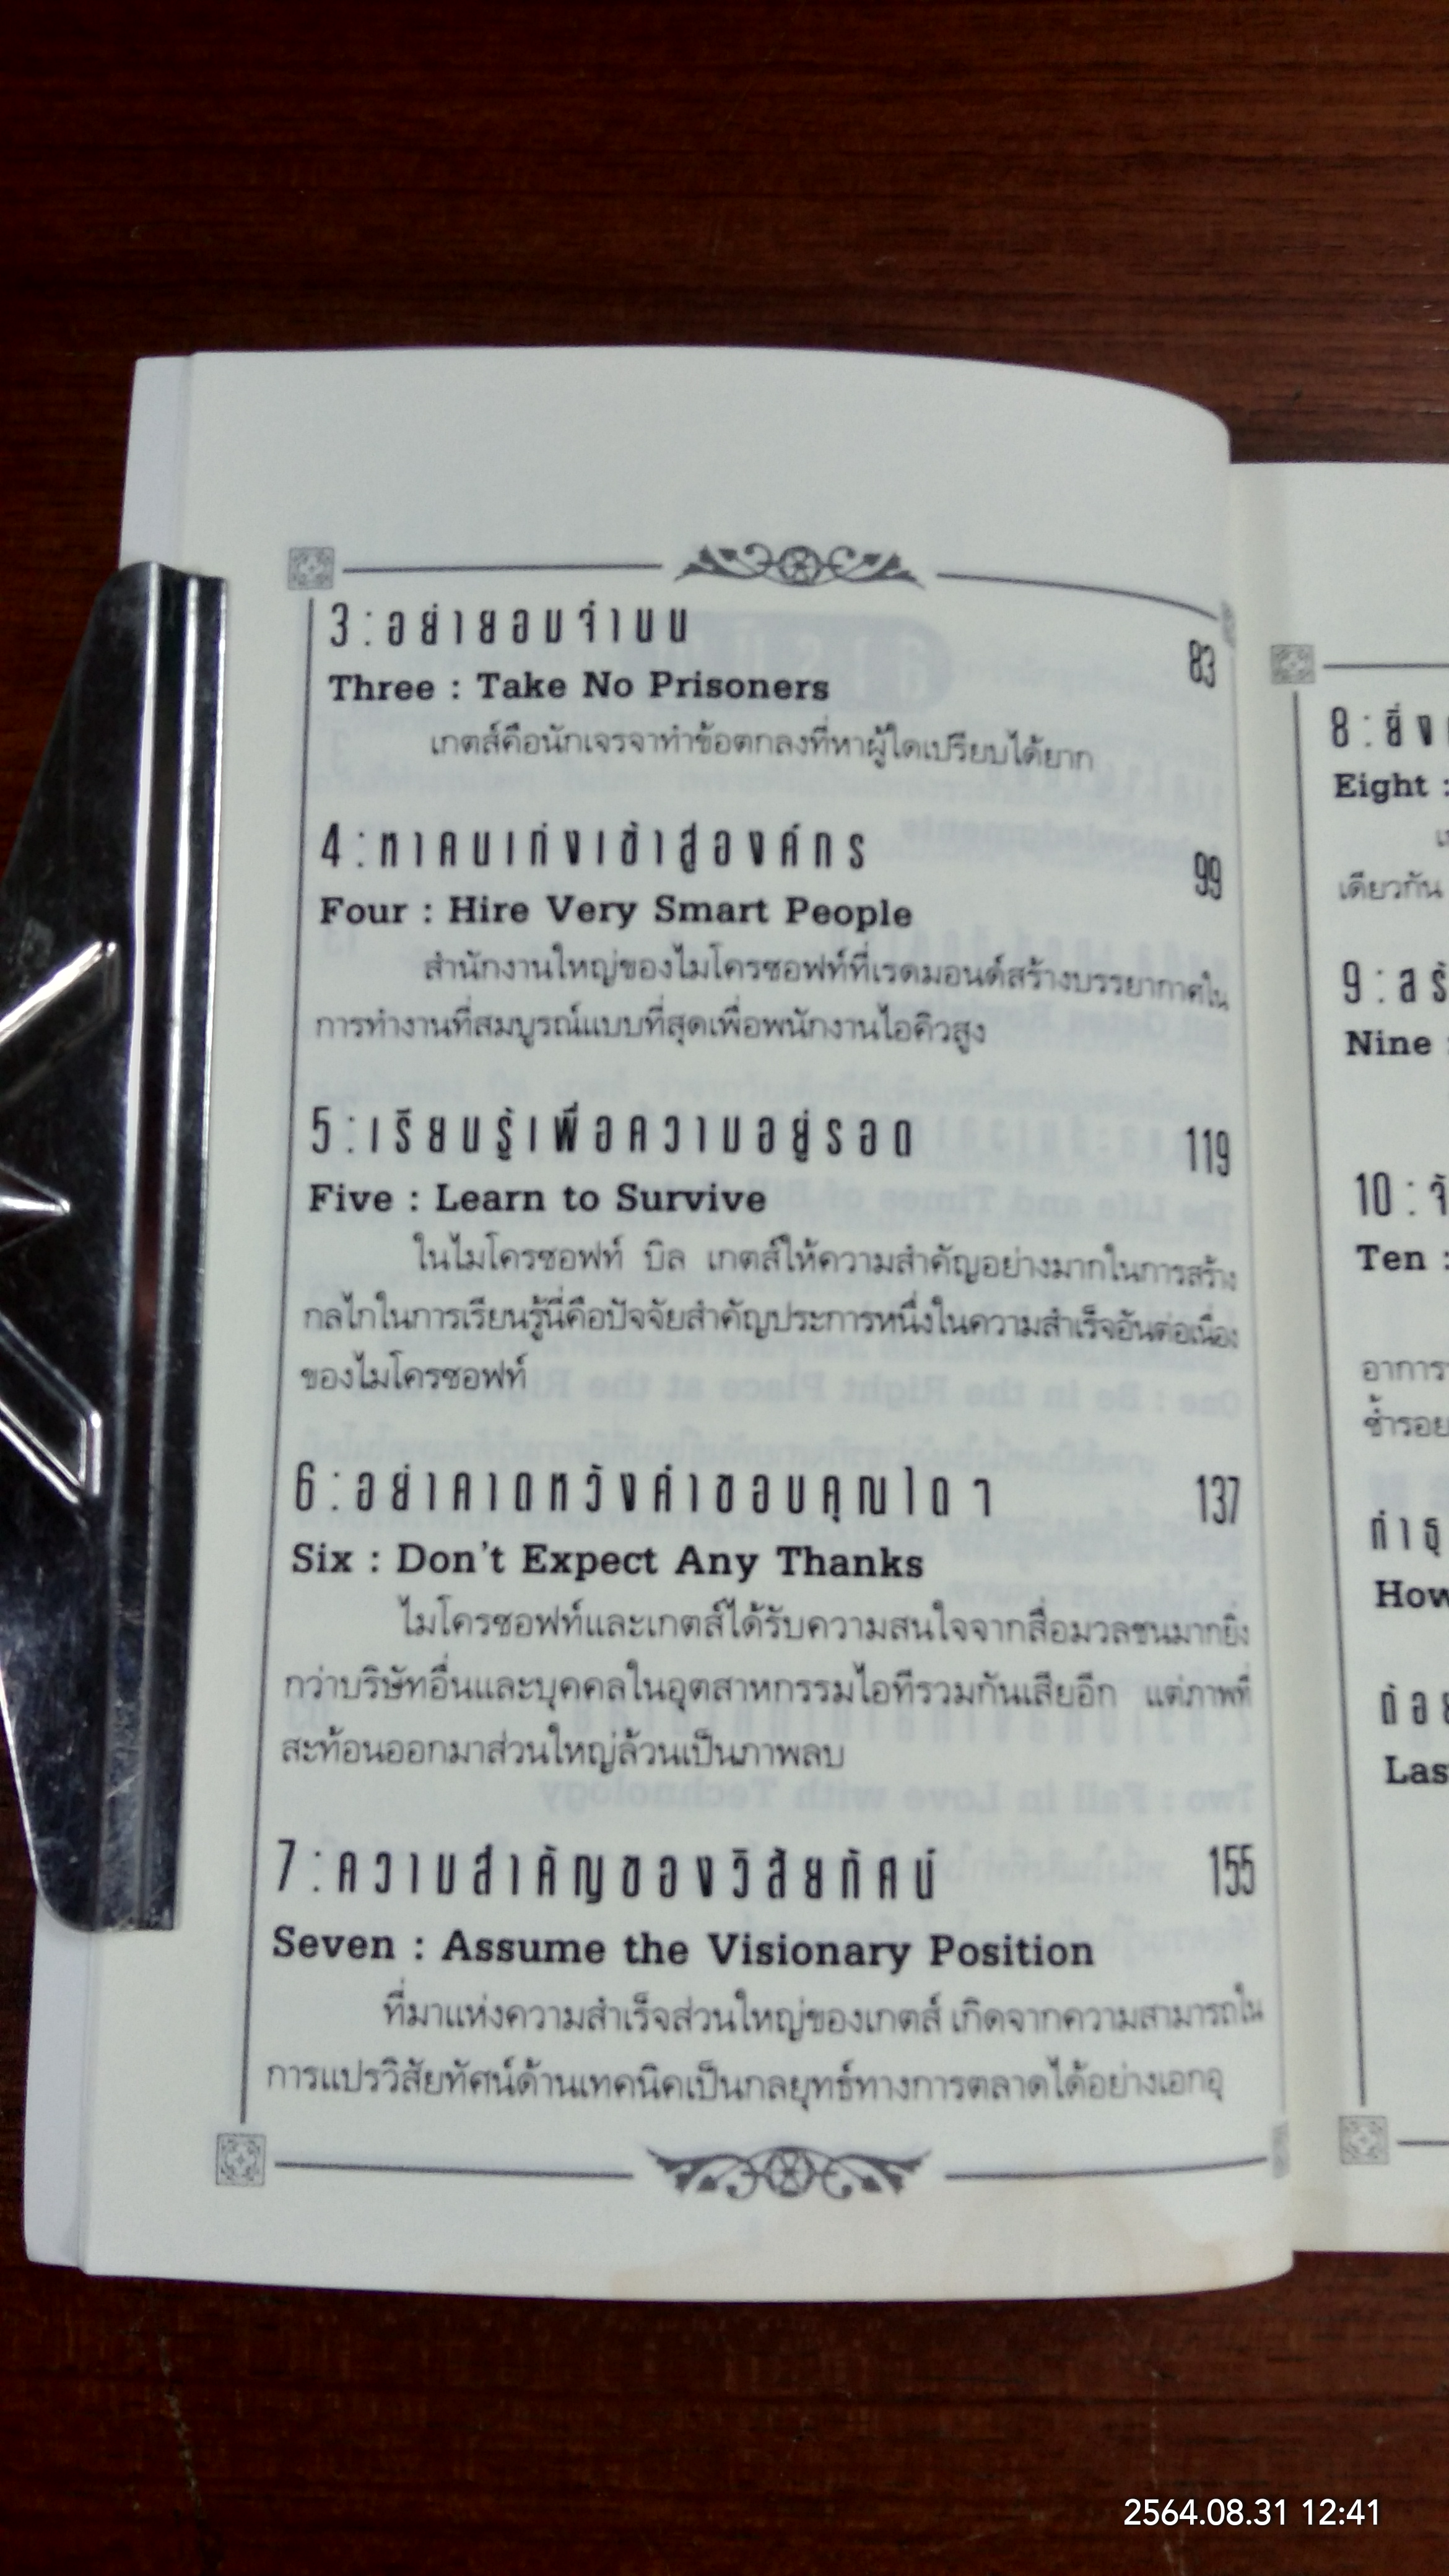 3 : อย่ายอมจำนน
83
Three : Take No Prisoners
เกตส์คือนักเจรจาทำข้อตกลงที่หาผู้ใดเปรียบได้ยาก
4 : หาคนเก่งเข้าสู่องค์กร
99
Four : Hire Very Smart People
สำนักงานใหญ่ของไมโครซอฟท์ที่เรดมอนด์สร้างบรรยากาศใน
การทำงานที่สมบูรณ์แบบที่สุดเพื่อพนักงานไอคิวสูง
5 : เรียนรู้เพื่อความอยู่รอด
119
Five : Learn to Survive
ในไมโครซอฟท์ บิล เกตส์ให้ความสำคัญอย่างมากในการสร้าง
กลไกในการเรียนรู้นี่คือปัจจัยสำคัญประการหนึ่งในความสำเร็จอันต่อเนื่อง
ของไมโครซอฟท์
6 : อย่าคาดหวังคำขอบคุณใด ๆ
137
Six : Don't Expect Any Thanks
ไมโครซอฟท์และเกตส์ได้รับความสนใจจากสื่อมวลชนมากยิ่ง
กว่าบริษัทอื่นและบุคคลในอุตสาหกรรมไอทีรวมกันเสียอีก แต่ภาพที่
สะท้อนออกมาส่วนใหญ่ล้วนเป็นภาพลบ
7 : ความสำคัญของวิสัยทัศน์
155
Seven : Assume the Visionary Position
ที่มาแห่งความสำเร็จส่วนใหญ่ของเกตส์ เกิดจากความสามารถใน
การแปรวิสัยทัศน์ด้านเทคนิคเป็นกลยุทธ์ทางการตลาดได้อย่างเอกอุ
8 : ยิ่ง
Eight :
เดียวกัน
9 :
Nine :
10 :
Ten :
อาการ
ซ้ำรอย
How
Las
2564.08.31 12:41